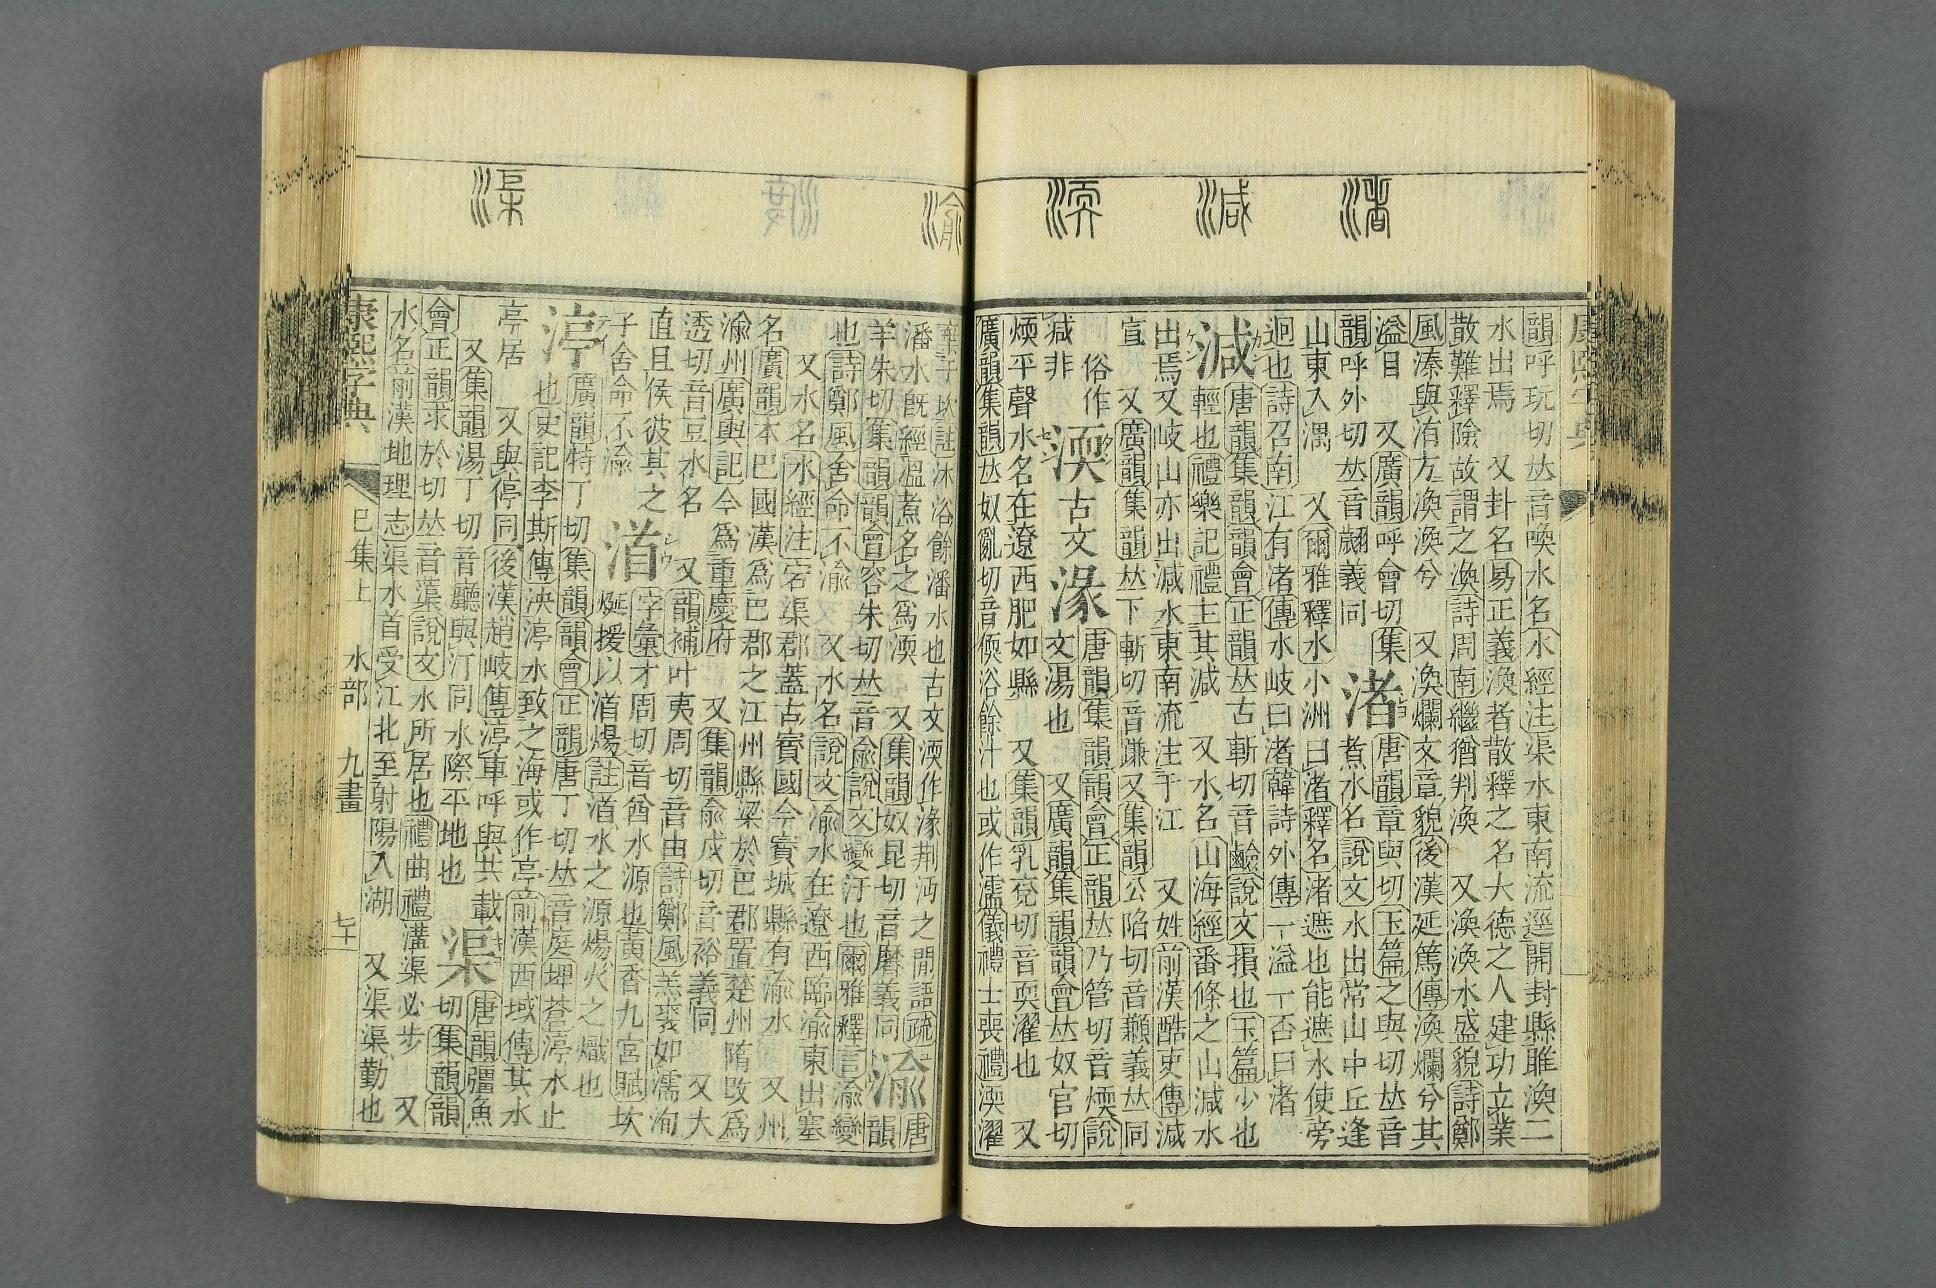 渚
減
渜
韻呼玩切𠀤音喚水名水經注渠水東南流逕開封縣睢渙二
水出焉 又卦名易正義渙者散釋之名大德之人建功立業
散難釋險故謂之渙詩周南繼猶判渙 又渙渙水盛貌詩鄭
風溱與洧方渙渙兮 又渙爛文章貌後漢延篤傳渙爛兮其
溢目 又廣韻呼會切集
韻呼外切𠀤音翽義同
渚
唐韻章與切玉篇之與切𠀤音
煮水名說文水出常山中丘逢
山東入湡 又爾雅釋水小洲曰渚釋名渚遮也能遮水使旁
迴也詩召南江有渚傳水岐曰渚韓詩外傳一溢一否曰渚
減
唐韻集韻韻會正韻𠀤古斬切音鹻說文損也玉篇少也
輕也禮樂記禮主其減 又水名山海經番條之山減水
出焉又岐山亦出減水東南流注于江 又姓前漢酷吏傳減
宣 又廣韻集韻𠀤下斬切音豏又集韻公陷切音䫡義𠀤同
俗作
減非
渜
古文
湪
唐韻集韻韻會正韻𠀤乃管切音煗說
文湯也 又廣韻集韻韻會𠀤奴官切
煗平聲水名在遼西肥如縣 又集韻乳兗切音耎濯也 又
廣韻集韻𠀤奴亂切音偄浴餘汁也或作濡儀禮士喪禮渜濯
渝
渠
棄于坎註沐浴餘潘水也古文渜作湪荊沔之閒語疏
潘水旣經溫煮名之爲渜 又集韻奴昆切音黁義同
渝
唐
韻
羊朱切集韻韻會容朱切𠀤音兪說文變汙也爾雅釋言渝變
也詩鄭風舍命不渝 又水名說文渝水在遼西臨渝東出塞
又水名水經注宕渠郡蓋古賨國今賨城縣有渝水 又州
名廣韻本巴國漢爲巴郡之江州縣梁於巴郡置楚州隋改爲
渝州廣輿記今爲重慶府 又集韻兪戍切音裕義同 又大
透切音豆水名 又韻補叶夷周切音由詩鄭風羔裘如濡洵
直且侯彼其之
子舍命不渝
渞
字彙才周切音酋水源也黃香九宮賦坎
烻援以渞煬註渞水之源煬火之熾也
渟
廣韻特丁切集韻韻會正韻唐丁切𠀤音庭埤蒼渟水止
也史記李斯傳決渟水致之海或作亭前漢西域傳其水
亭居 又與停同後漢趙岐傳渟車呼與共載
又集韻湯丁切音廳與汀同水際平地也
渠
唐韻彊魚
切集韻韻
會正韻求於切𠀤音蕖說文水所居也禮曲禮溝渠必步 又
水名前漢地理志渠水首受江北至射陽入湖 又渠渠勤也
康熙字典 巳集上 水部 九畫